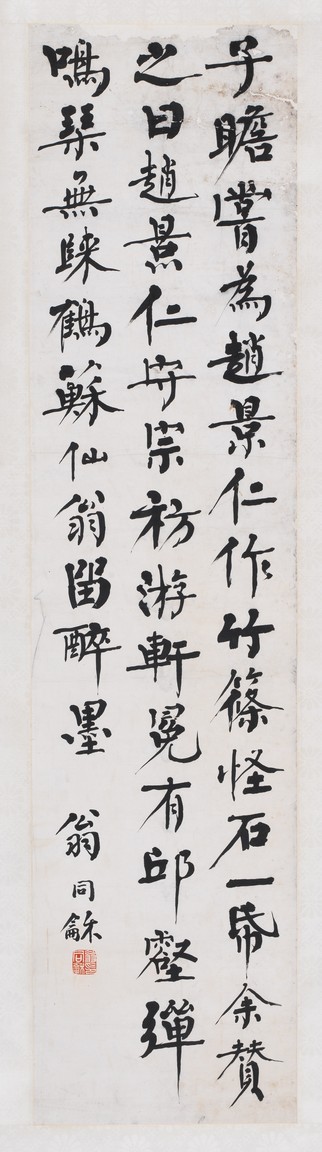 子瞻嘗為趙景仁作竹篠怪石一帋余賛
之曰趙景仁守宗祊游軒冕有邱壑彈
鳴琴無踈鶴蘇仙翁留醉墨
翁同龢